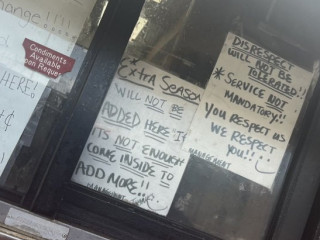 ange!!!!
Condiments
Available
Upon Request
HERE!
Extra Season
WILL NOT BE
ADDED HERE IF
ITS NOT ENOUGH
COME INSIDE TO
ADD MORE!!
MANAGEMENT
DISRESPECT
WILL NOT BE
TOLERATED!!
*SERVICE NOT
MANDATORY!!
YOU RESPECT US
WE RESPECT
YOU!!
MANAGEMENT